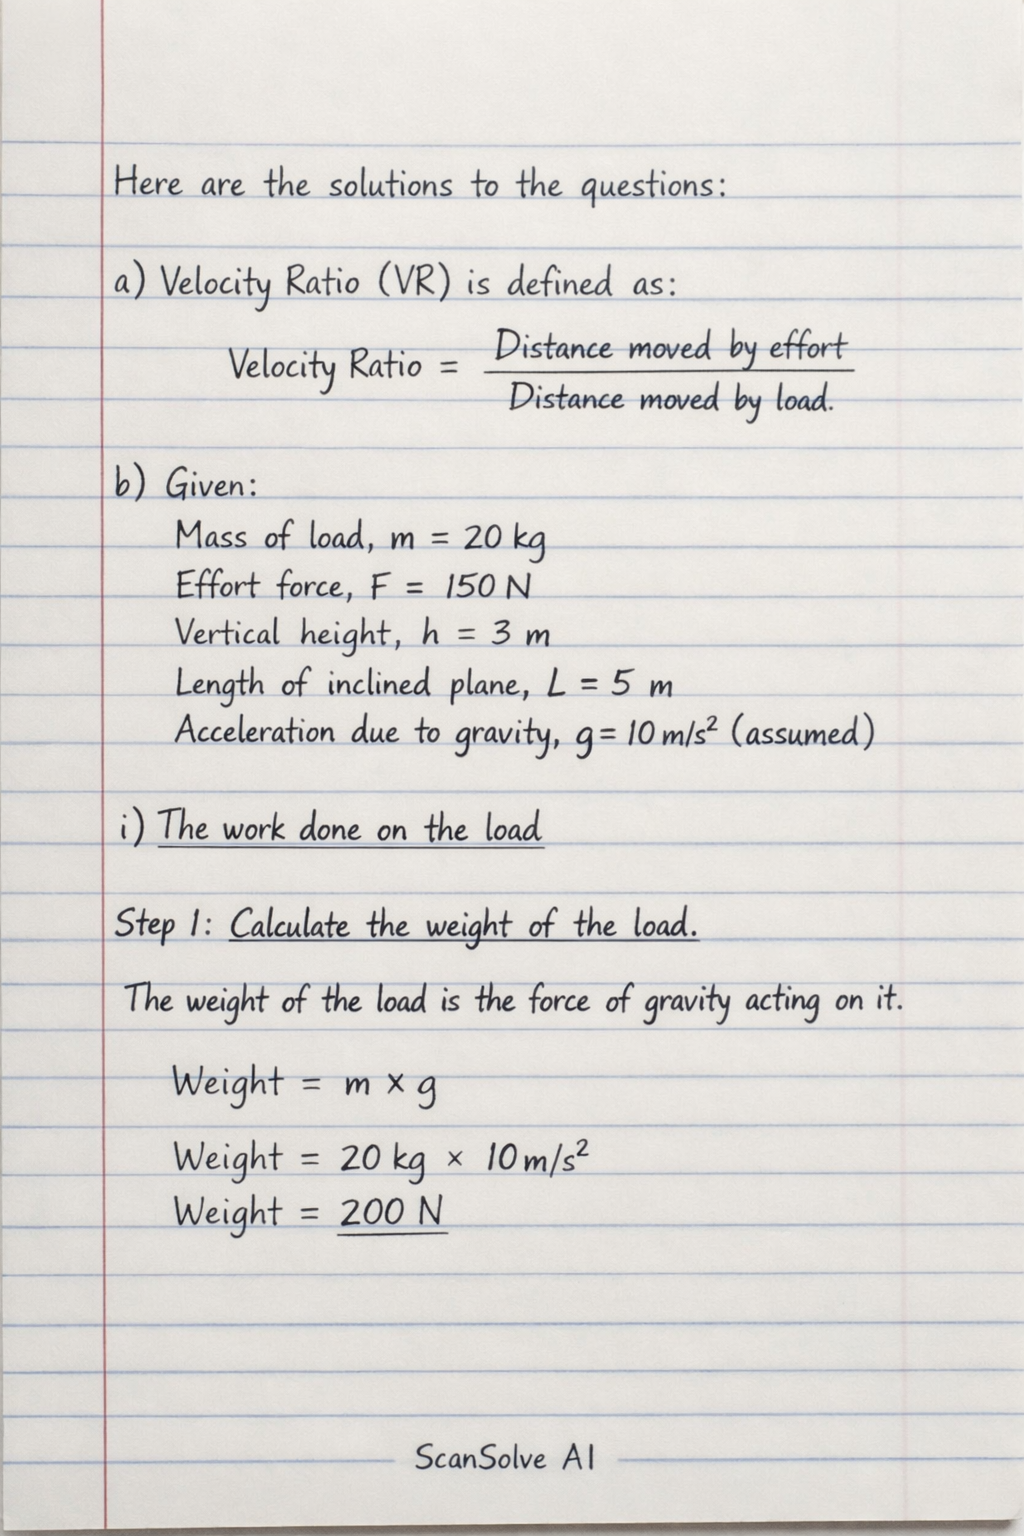 Here are the solutions to the questions:
a) Velocity Ratio (VR) is defined as:
Velocity Ratio = Distance moved by effort
Distance moved by load.
b) Given:
Mass of load, m = 20 kg
Effort force, F = 150 N
Vertical height, h = 3 m
Length of inclined plane, L = 5 m
Acceleration due to gravity, g = 10 m/s² (assumed)
i) The work done on the load
Step 1: Calculate the weight of the load.
The weight of the load is the force of gravity acting on it.
Weight = m × g
Weight = 20 kg × 10 m/s²
Weight = 200 N
ScanSolve AI